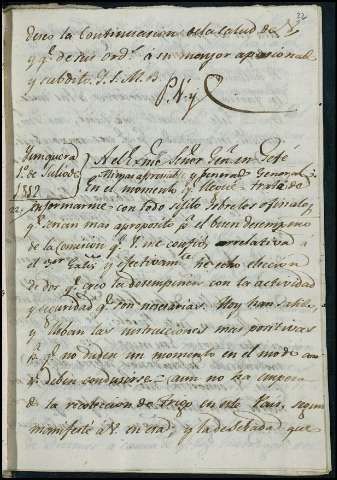 22
deseo la Continuacion de la salud de V
y q.e de sus ord.s a su mayor apasionado
y subdito. Q. S. M. B.
Junquera
1.º de Julio de
1812
Al Ex.mo Señor Gen.l en Gefe
y general General
en el momento q.e llegué traté de
informarme con todo sigilo sobre los oficiales
q.e eran mas aproposito p.a el buen desempeño
de la comision q.e V. me confió, relativa a
el y efectivam.te he echo eleccion
de dos q.e creo la desempeñen con la actividad
y seguridad q.e son necesarias. Hoy han salido
y llevan las instrucciones mas positivas
p.a q.e no duden un momento en el modo con
q.e deben conducirse. aun no ha empeza
do la recoleccion de trigo en este Pais, segun
manifesté á V. en esa; y la deseada que